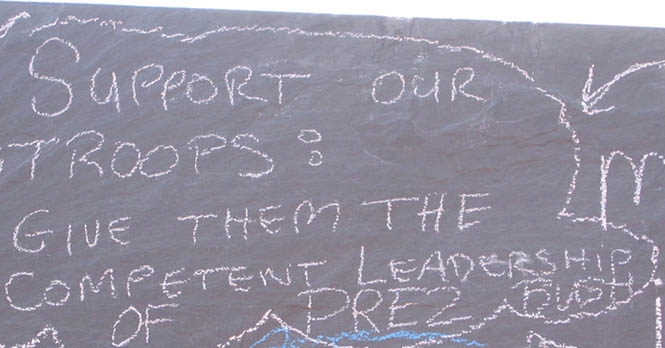 SUPPORT OUR
TROOPS:
GIVE THEM THE
COMPETENT LEADERSHIP
OF PREZ BUSH